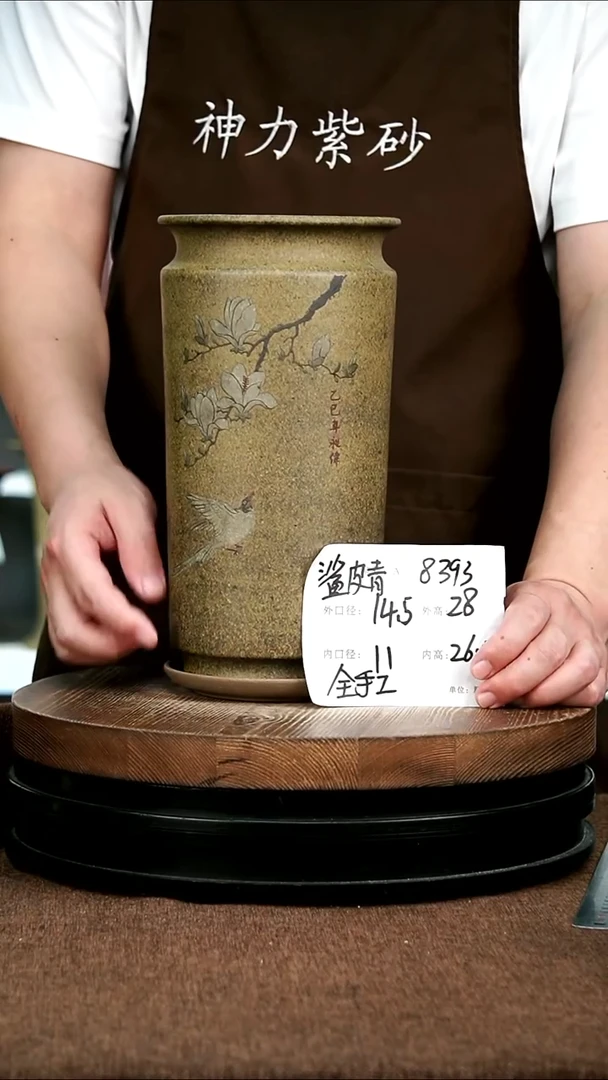 神力紫砂
乙巳年
鲨皮青 8393
外口径: 14.5 外高: 28
内口径: 11 内高: 26.
全手工 单位: